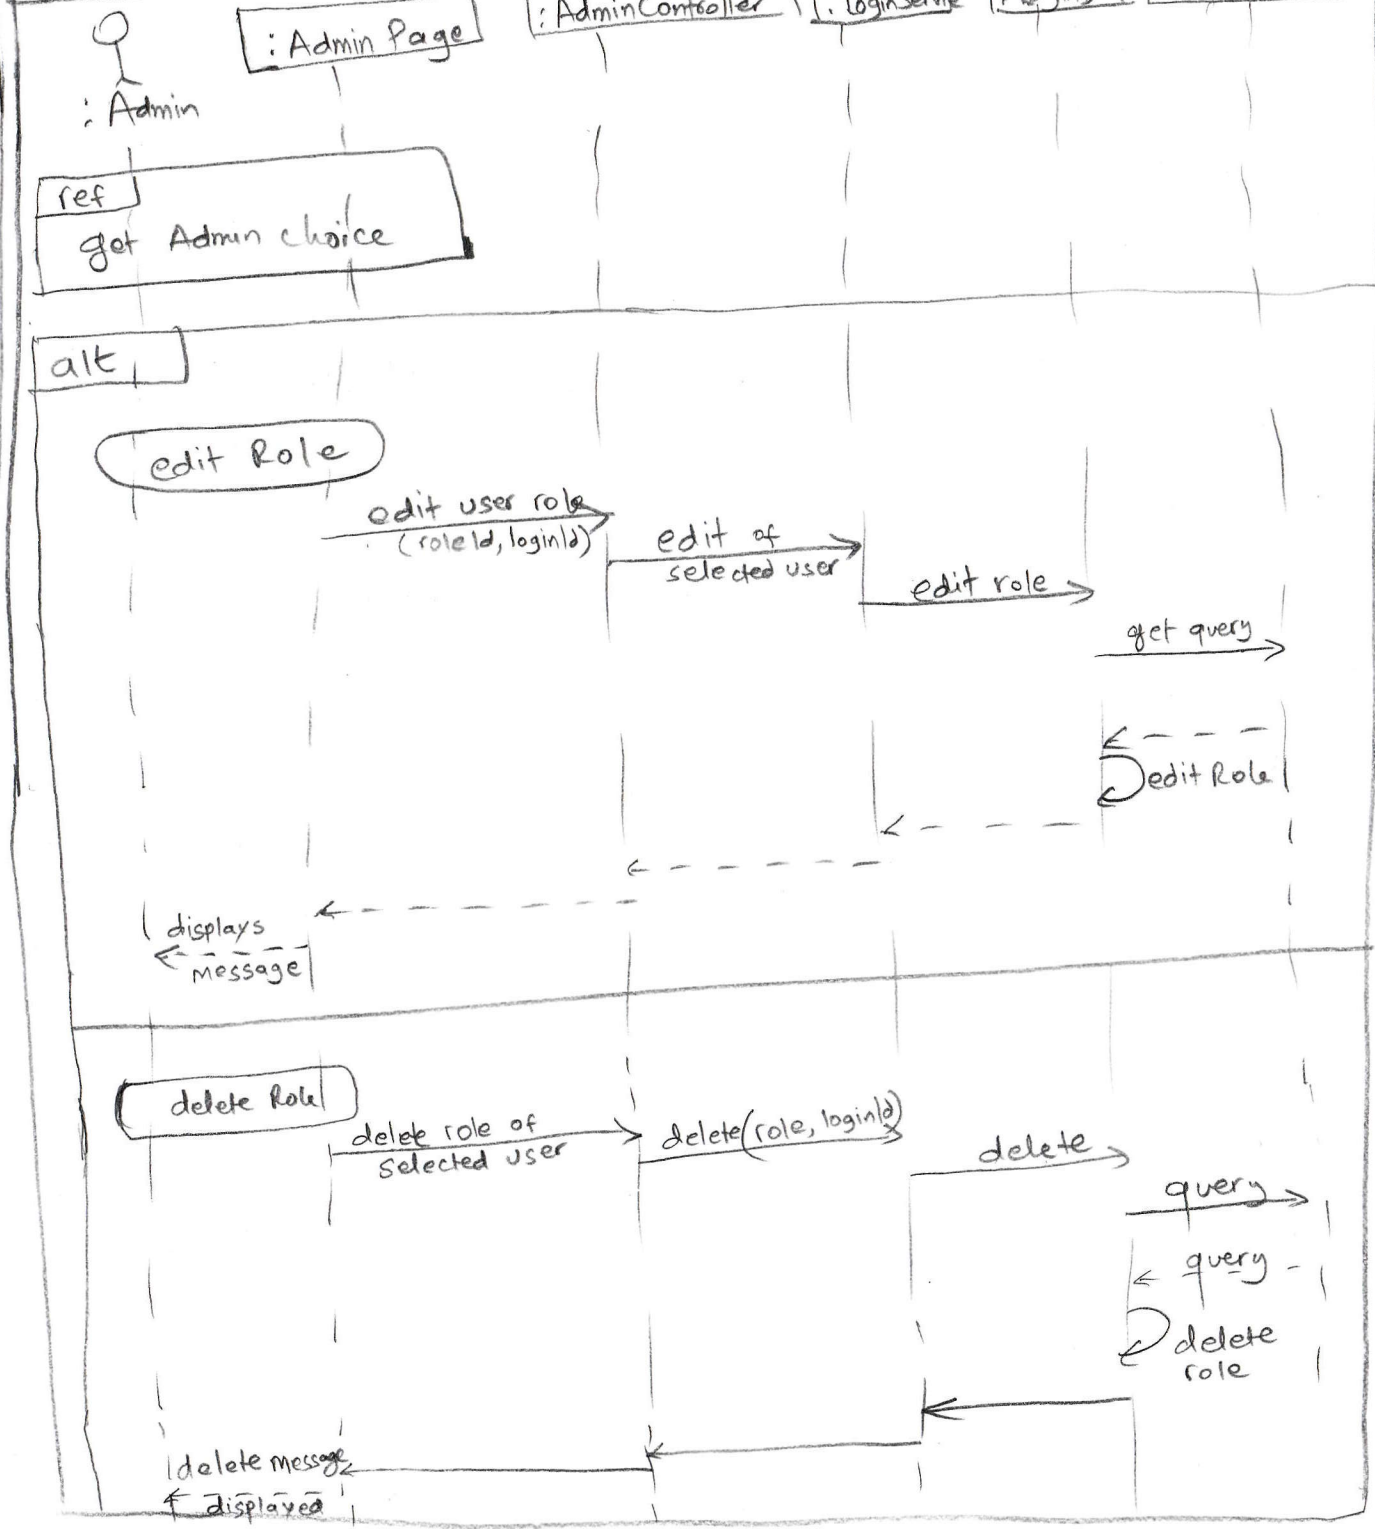 : Admin
: Admin Page
: AdminController
ref
get Admin choice
alt
edit Role
edit user role
(roleId, loginId)
edit of
selected user
edit role
get query
edit Role
displays
message
delete Role
delete role of
selected user
delete(role, loginId)
delete
query
query
delete
role
delete message
displayed